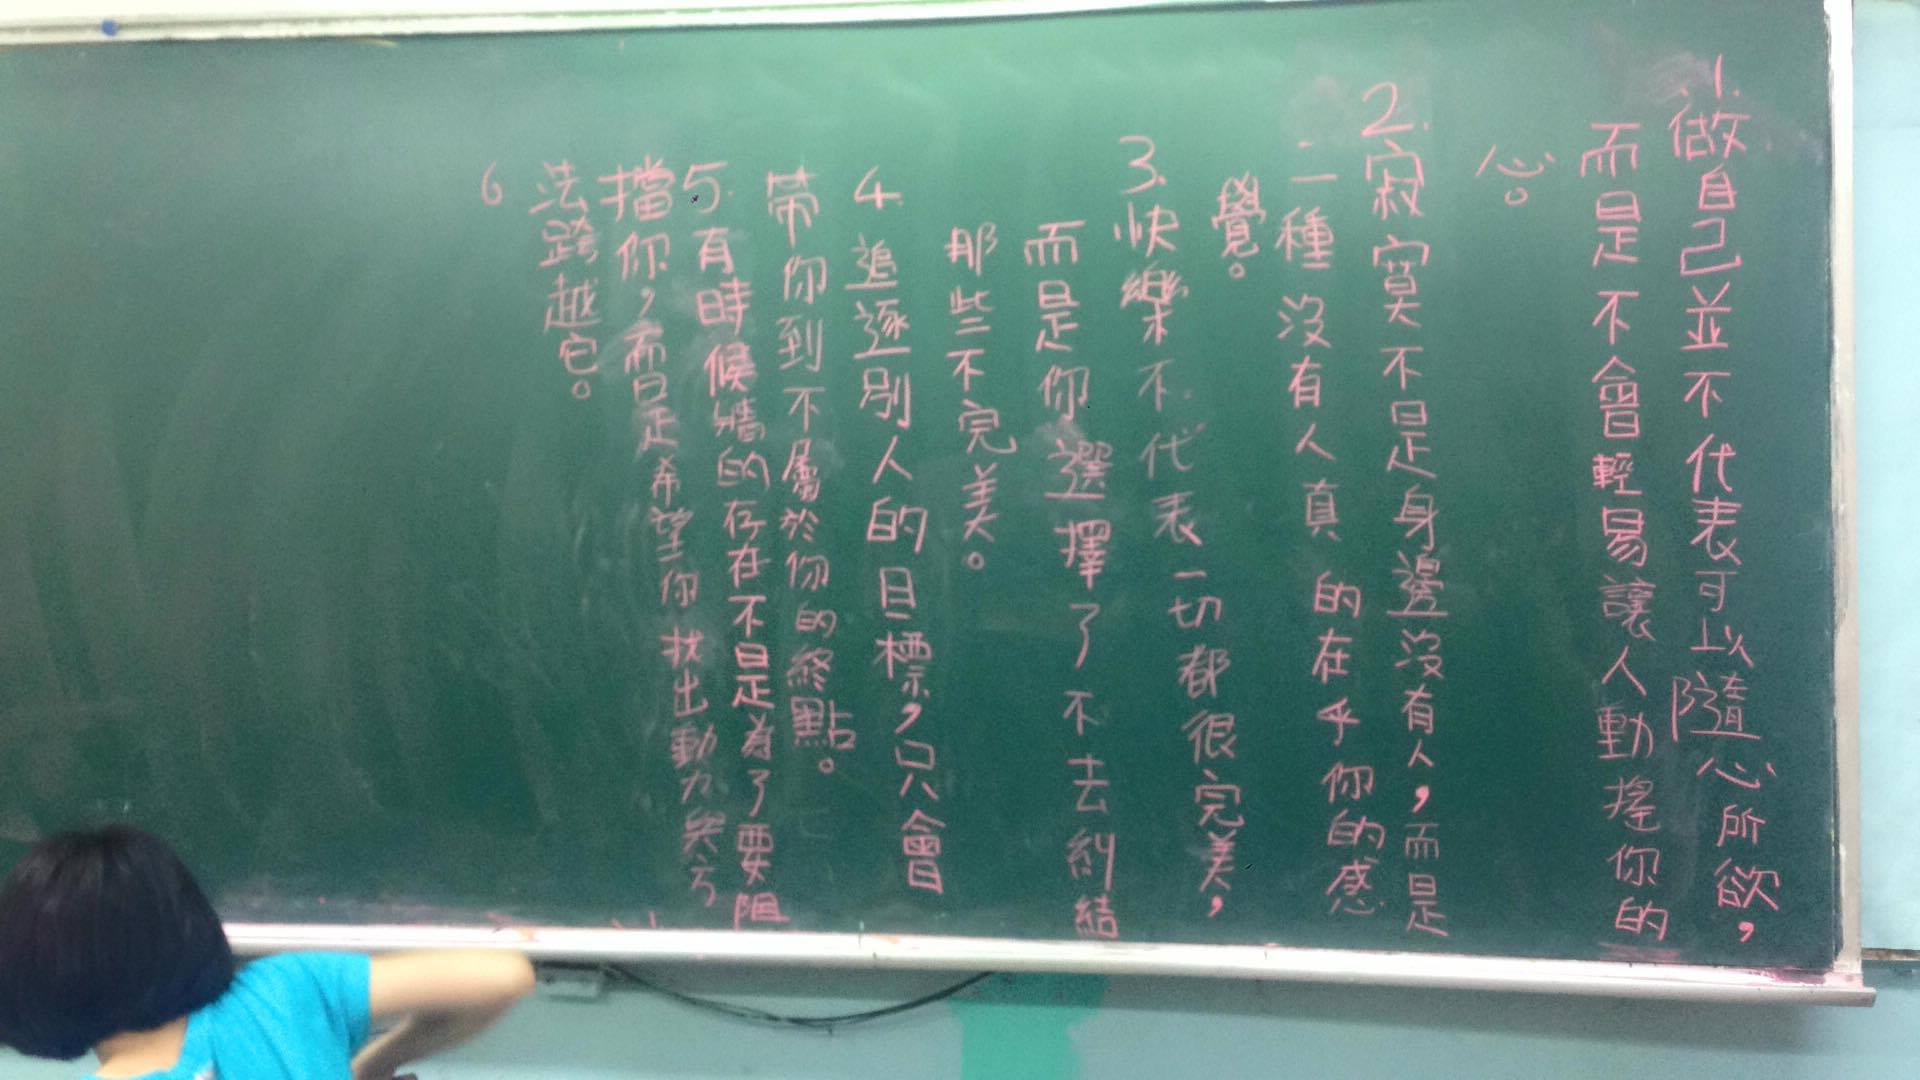 1.做自己並不代表可以隨心所欲，
而是不會輕易讓人動搖你的
心。
2.寂寞不是身邊沒有人，而是
一種沒有人真的在乎你的感
覺。
3.快樂不代表一切都很完美，
而是你選擇了不去糾結
那些不完美。
4.追逐別人的目標，只會
帶你到不屬於你的終點。
5.有時候牆的存在不是為了要阻
擋你，而是希望你找出動力與方
法跨越它。
6